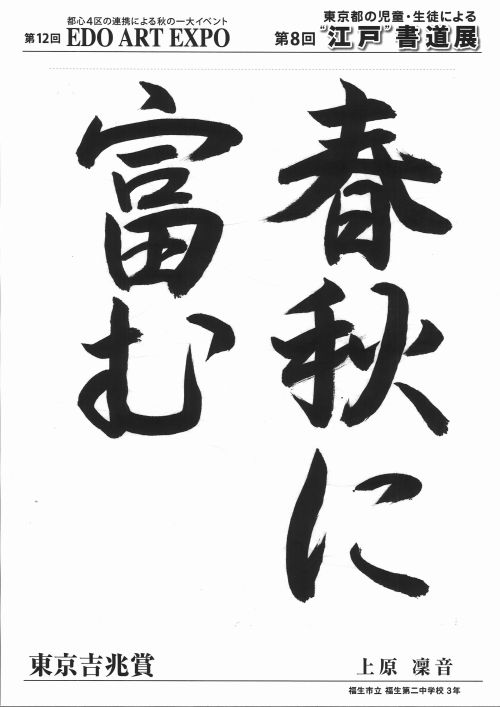 都心4区の連携による秋の一大イベント
第12回 EDO ART EXPO
東京都の児童・生徒による
第8回 “江戸”書道展
春秋に
富む
東京吉兆賞
上原 凜音
福生市立 福生第二中学校 3年